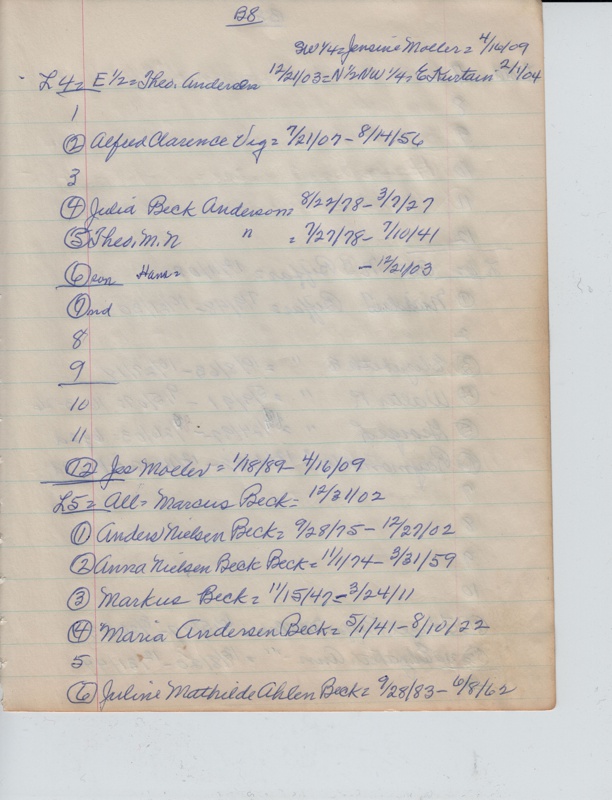 B8
SW 1/4 = Jensine Moeller = 4/16/09
L 4 = E 1/2 = Theo. Anderson 12/21/03 = N 1/2 NW 1/4 = E Kurtain 2/1/04
1
② Alfred Clarence Vig = 7/21/07 - 8/14/56
3
④ Julia Beck Anderson = 8/22/78 - 3/7/27
⑤ Theo. M. N " = 7/27/78 - 7/10/41
⑥ Hans = - 12/21/03
⑦ nd
8
9
10
11
⑫ Jes Moeller = 1/18/89 - 4/16/09
L5 = All = Marcus Beck = 12/31/02
① Anders Nielsen Beck = 9/28/75 - 12/27/02
② Anna Nielsen Beck Beck = 11/1/74 - 3/31/59
③ Markus Beck = 11/15/47 - 3/24/11
④ Maria Andersen Beck = 5/1/41 - 8/10/22
5
⑥ Juline Mathilde Ahlen Beck = 9/28/83 - 6/8/62